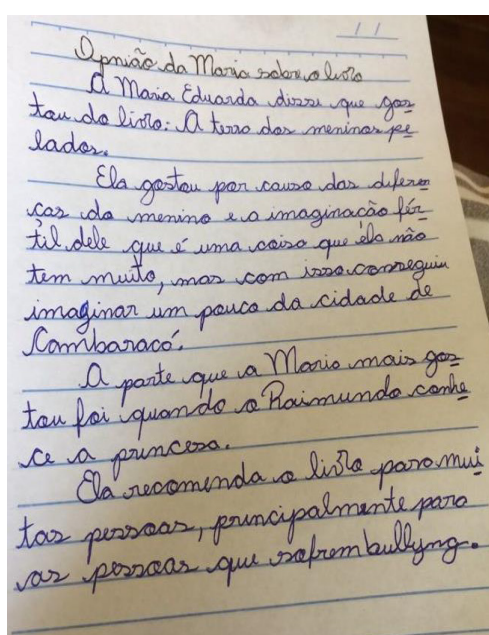 Opnião da Maria sobre o livro
A Maria Eduarda disse que gos
tou do livro: A terra dos meninos pe
lados.
Ela gostou por causa das diferen
ças do menino e a imaginação fér
til dele que é uma coisa que ela não
tem muito, mas com isso conseguiu
imaginar um pouco da cidade de
Cambaracó.
A parte que a Maria mais gos
tou foi quando o Raimundo conhe
ce a princesa.
Ela recomenda o livro para mui
tas pessoas, principalmente para
as pessoas que sofrem bullyng.